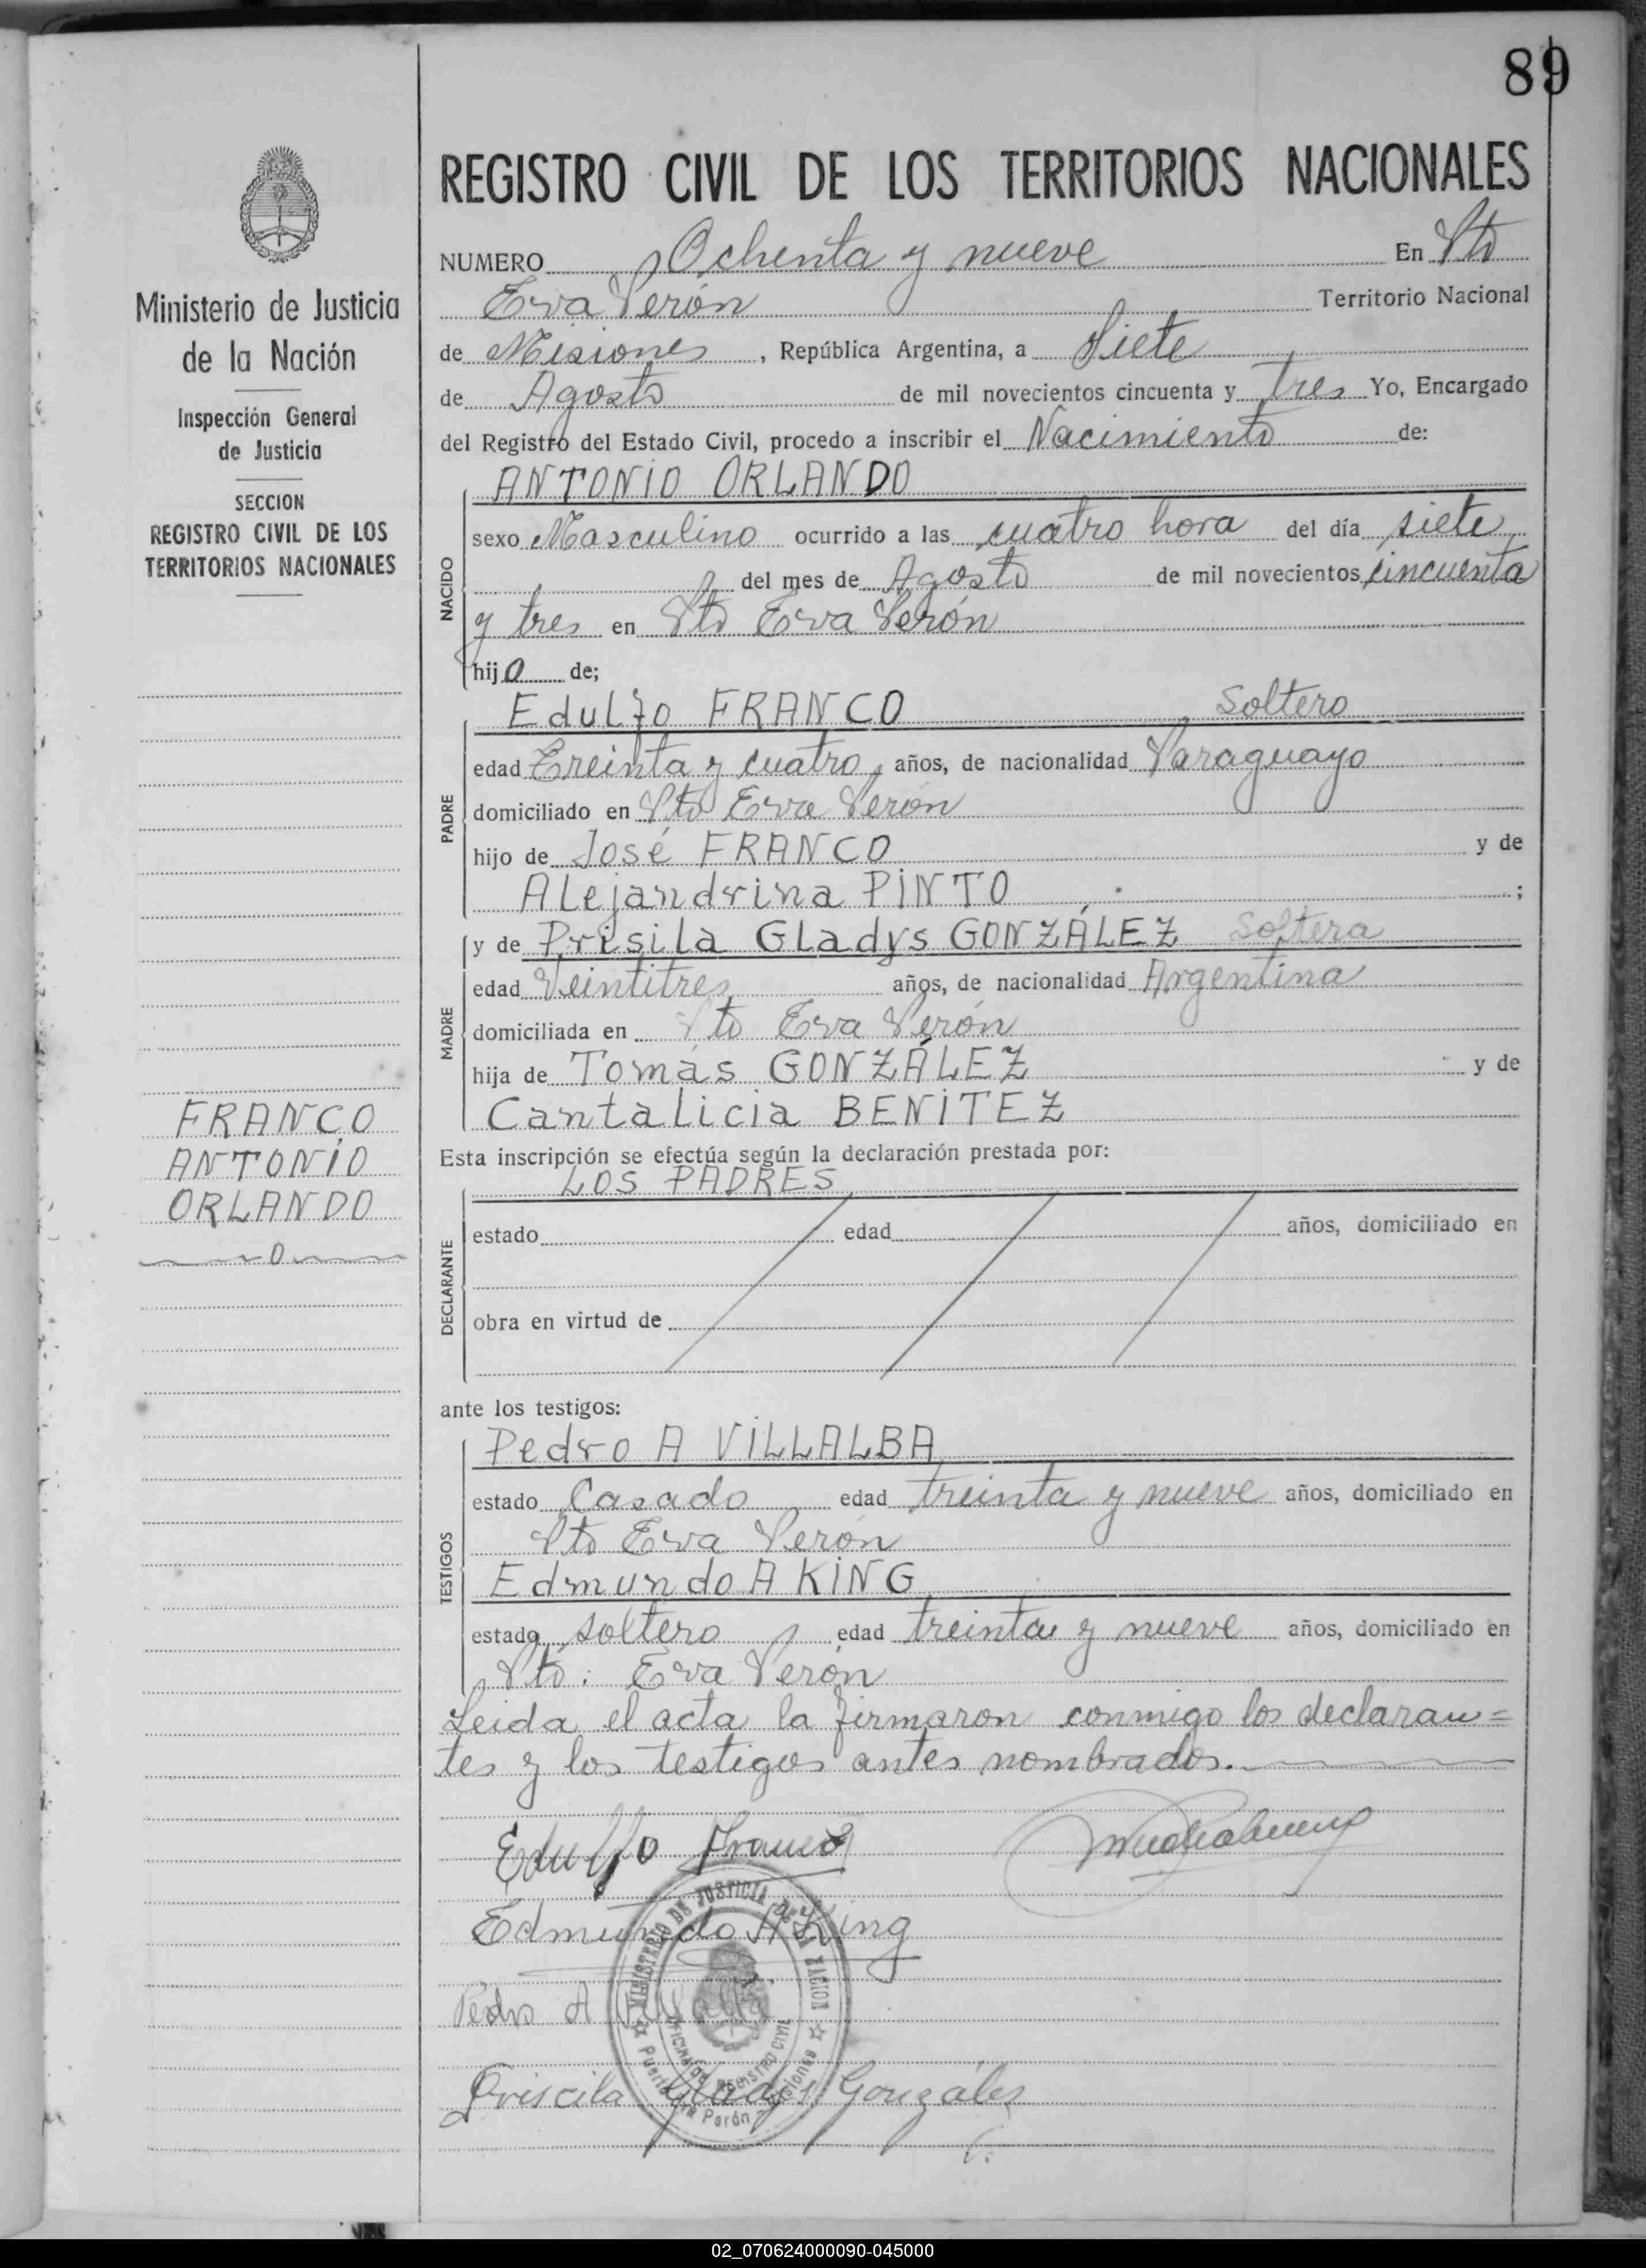 89
REGISTRO CIVIL DE LOS TERRITORIOS NACIONALES
Ministerio de Justicia
de la Nación
Inspección General
de Justicia
SECCION
REGISTRO CIVIL DE LOS
TERRITORIOS NACIONALES
FRANCO
ANTONIO
ORLANDO
NUMERO Ochenta y nueve En Pto
Eva Perón Territorio Nacional
de Misiones, República Argentina, a Siete
de Agosto de mil novecientos cincuenta y tres Yo, Encargado
del Registro del Estado Civil, procedo a inscribir el Nacimiento de:
NACIDO
ANTONIO ORLANDO
sexo Masculino ocurrido a las cuatro hora del día siete
del mes de Agosto de mil novecientos cincuenta
y tres en Pto Eva Perón
hijo de;
PADRE
Edulfo FRANCO Soltero
edad Treinta y cuatro años, de nacionalidad Paraguayo
domiciliado en Pto Eva Perón
hijo de José FRANCO y de
Alejandrina PINTO ;
MADRE
y de Prisila Gladys GONZÁLEZ Soltera
edad Veintitres años, de nacionalidad Argentina
domiciliada en Pto Eva Perón
hija de Tomás GONZÁLEZ y de
Cantalicia BENITEZ
Esta inscripción se efectúa según la declaración prestada por:
DECLARANTE
LOS PADRES
estado edad años, domiciliado en
obra en virtud de
ante los testigos:
TESTIGOS
Pedro A VILLALBA
estado Casado edad treinta y nueve años, domiciliado en
Pto Eva Perón
Edmundo A KING
estado soltero edad treinta y nueve años, domiciliado en
Pto: Eva Perón
Leida el acta la firmaron conmigo los declaran=
tes y los testigos antes nombrados.
Edulfo Franco
Edmundo A King
Pedro A Villalba
Priscila Gladys González
MINISTERIO DE JUSTICIA DE LA NACION
OFICINA DE REGISTRO CIVIL
Puerto Eva Perón Misiones
02_070624000090-045000